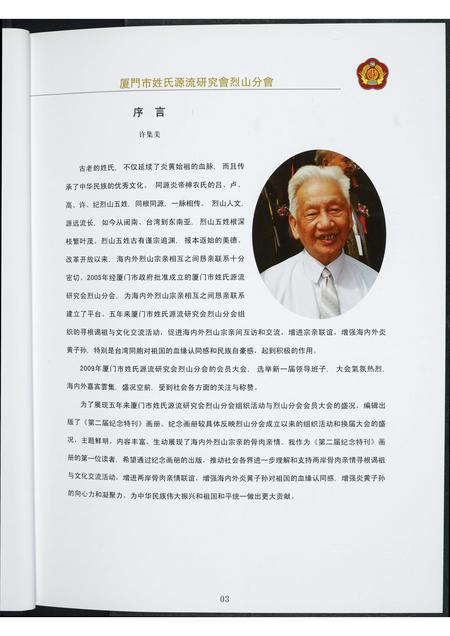 厦門市姓氏源流研究會烈山分會
序 言
许集美
古老的姓氏，不仅延续了炎黄始祖的血脉，而且传
承了中华民族的优秀文化。同源炎帝神农氏的吕、卢、
高、许、纪烈山五姓，同根同源，一脉相传。烈山人文，
源远流长，如今从闽南、台湾到东南亚，烈山五姓根深
枝繁叶茂。烈山五姓古有谨宗追渊，报本返始的美德。
改革开放以来，海内外烈山宗亲相互之间恳亲联系十分
密切。2005年经厦门市政府批准成立的厦门市姓氏源流
研究会烈山分会，为海内外烈山宗亲相互之间恳亲联系
建立了平台。五年来厦门市姓氏源流研究会烈山分会组
织的寻根谒祖与文化交流活动，促进海内外烈山宗亲间互访和交流，增进宗亲联谊，增强海内外炎
黄子孙，特别是台湾同胞对祖国的血缘认同感和民族自豪感，起到积极的作用。
2009年厦门市姓氏源流研究会烈山分会的会员大会，选举新一届领导班子，大会氣氛热烈，
海内外嘉宾雲集，盛况空前，受到社会各方面的关注与称赞。
为了展现五年来厦门市姓氏源流研究会烈山分会组织活动与烈山分会会员大会的盛况，编辑出
版了《第二届纪念特刊》画册。纪念画册较具体反映烈山分会成立以来的组织活动和换届大会的盛
况，主题鲜明，内容丰富，生动展现了海内外烈山宗亲的骨肉亲情。我作为《第二届纪念特刊》画
册的第一位读者，希望通过纪念画册的出版，推动社会各界进一步理解和支持两岸骨肉亲情寻根谒祖
与文化交流活动，增进两岸骨肉亲联谊，增强海内外炎黄子孙对祖国的血缘认同感，增强炎黄子孙
的向心力和凝聚力，为中华民族伟大振兴和祖国和平统一做出更大贡献。
03